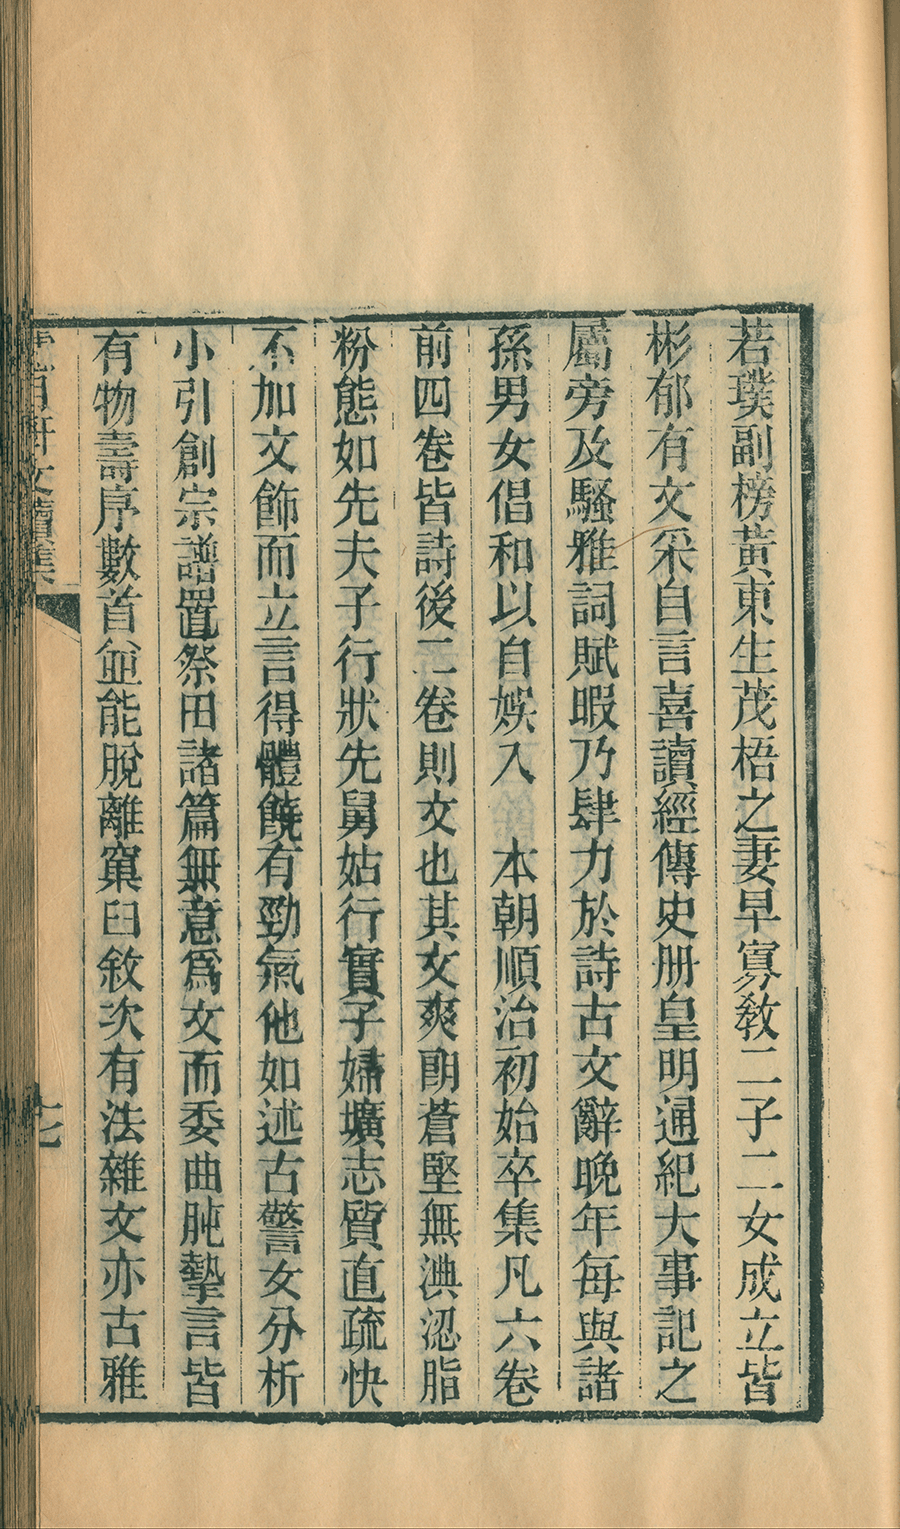 若璞副榜黃東生茂梧之妻早寡敎二子二女成立皆
彬郁有文采自言喜讀經傳史册皇明通紀大事記之
屬旁及騷雅詞賦暇乃肆力於詩古文辭晚年每與諸
孫男女倡和以自娛入　本朝順治初始卒集凡六卷
前四卷皆詩後二卷則文也其文爽朗蒼堅無淟涊脂
粉態如先夫子行狀先舅姑行實子婦壙志質直疏快
不加文飾而立言得體饒有勁氣他如述古警女分析
小引創宗譜置祭田諸篇無意爲文而委曲肫摯言皆
有物壽序數首並能脫離窠臼敘次有法雜文亦古雅
軒文續集
七